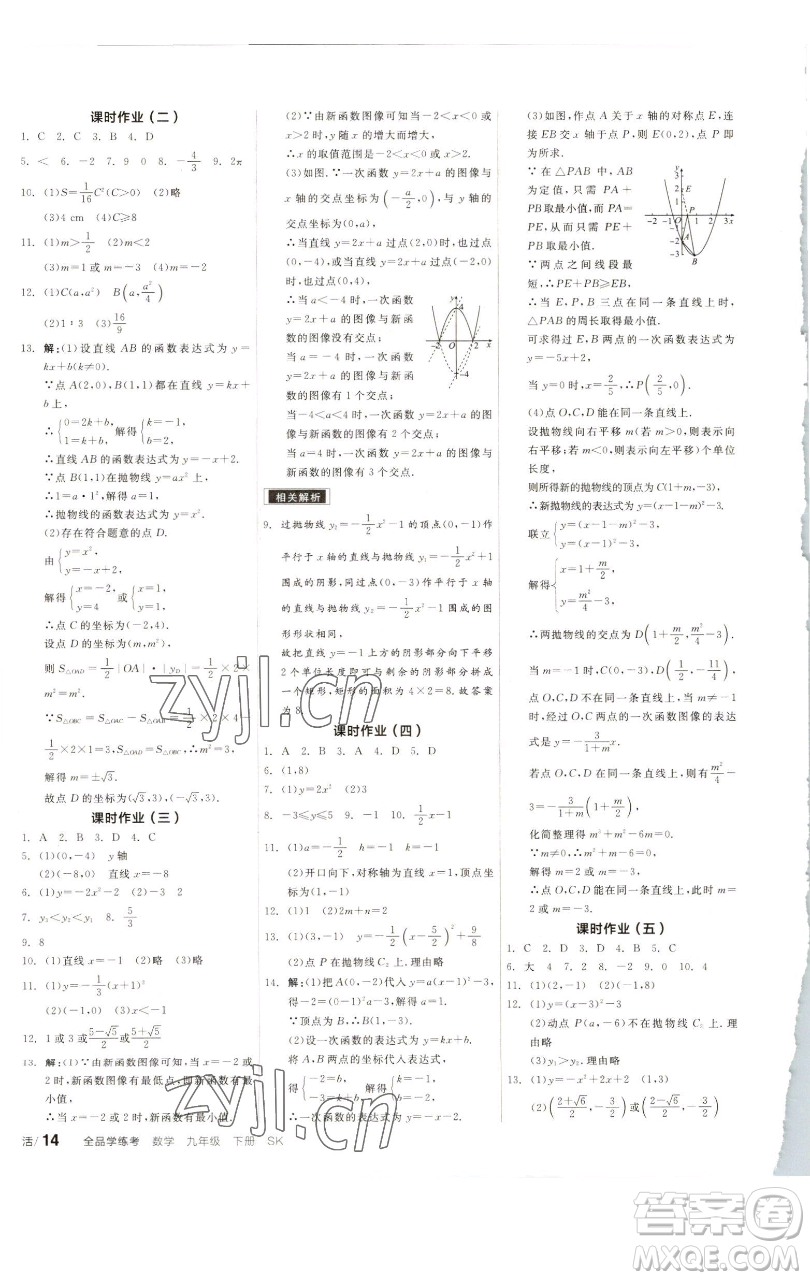 课时作业(二)
1. C 2. C 3. B 4. D
5. < 6. -2 7. 9 0 8. -4/3 9. 2π
10. (1)S=1/16C²(C>0) (2)略
(3)4 cm (4)C≥8
11. (1)m>1/2 (2)m<2
(3)m=1
12. (1)C(a,a²) B(a,a²/4)
(2)1∶3 (3)16/9
13. 解:(1)设直线 AB 的函数表达式为 y=
kx+b(k≠0).
∵点 A(2,0),B(1,1)都在直线 y=kx+
b 上,
∴{0=2k+b, 1=k+b, 解得{k=-1, b=2,
∴直线 AB 的函数表达式为 y=-x+2.
∵点 B(1,1)在抛物线 y=ax² 上,
∴1=a·1²,解得 a=1,
∴抛物线的函数表达式为 y=x².
(2)存在符合题意的点 D.
由{y=x², y=-x+2,
解得{x=-2, y=4 或{x=1, y=1,
∴点 C 的坐标为(-2,4).
设点 D 的坐标为(m,m²),
则 S△OAD=1/2|OA|·|yD|=1/2×2×
m²=m².
∵S△OBC=S△OAC-S△OAB=1/2×2×4-
1/2×2×1=3,S△OAD=S△OBC,∴m²=3,
解得 m=±√3.
故点 D 的坐标为(√3,3),(-√3,3).
课时作业(三)
1. A 2. B 3. D 4. C
5. (1)(0,-4) y轴
(2)(-8,0) 直线 x=-8
6. (1)y=-2x²-2 (2)2
7. y₃<y₂<y₁ 8. 5/3
9. 8
10. (1)直线 x=-1 (2)略
11. (1)y=-1/3(x+1)²
(2)(-1,0) (3)x<-1
12. 1或3或(5-√5)/2或(5+√5)/2
13. 解:(1)∵由新函数图像可知,当 x=-2或
2时,新函数图像有最低点,即函数有最小值,
∴当 x=-2或2时,函数有最小值.
(2)∵由新函数图像可知当-2<x<0或
x>2时,y 随 x 的增大而增大,
∴x 的取值范围是-2<x<0或 x>2.
(3)如图.∵一次函数 y=2x+a 的图像与
x 轴的交点坐标为(-a/2,0),与 y 轴的
交点坐标为(0,a),
∴当直线 y=2x+a 过点(2,0)时,也过点
(0,-4),或当直线 y=2x+a 过点(-2,
0)时,也过点(0,4),
∴当 a<-4时,一次函数
y=2x+a 的图像与新函
数的图像没有交点;
当 a=-4时,一次函数
y=2x+a 的图像与新函
数的图像有1个交点;
当-4<a<4时,一次函数 y=2x+a 的图
像与新函数的图像有2个交点;
当 a=4时,一次函数 y=2x+a 的图像与
新函数的图像有3个交点.
相关解析
9. 过抛物线 y₂=-1/2x²-1的顶点(0,-1)作
平行于 x 轴的直线与抛物线 y₁=-1/2x²+1
围成的阴影,同过点(0,-3)平行于 x 轴
的直线与抛物线 y₂=-1/2x²-1围成的图
形形状相同.
故把直线 y=-1上方的阴影部分向下平移
2个单位长度即可与剩余的阴影部分拼成
一个矩形,矩形的面积为4×2=8.故答案
为8.
课时作业(四)
1. A 2. B 3. A 4. D 5. D
6. (1,8)
7. (1)y=2x² (2)3
8. -3≤y≤5 9. -1 10. 1/2x-1
11. (1)a=-1/2
(2)开口向下,对称轴为直线 x=1,顶点坐
标为(1,2)
12. (1)1 (2)2m+n=2
13. (1)(3,-1) y=-1/2(x-5/2)²+9/8
(2)点 P 在抛物线 C₂ 上.理由略
14. 解:(1)把 A(0,-2)代入 y=(x-1)²+n,
得-2=1+n,解得 n=-3,
∴抛物线的表达式为 y=(x-1)²-3.
∵顶点为 B,∴B(1,-3).
(2)设一次函数的表达式为 y=kx+b.
将 A,B 两点的坐标代入表达式,
得{-2=b, -3=k+b, 解得{k=-1, b=-2,
∴一次函数的表达式为 y=-x-2.
(3)如图,作点 A 关于 x 轴的对称点 E,连
接 EB 交 x 轴于点 P,则点 P 即
为所求.
∵在△PAB 中,AB
为定值,只需 PA+
PB 取最小值,而 PA=
PE,从而只需 PE+
PB 取最小值.
∵两点之间线段最
短,∴PE+PB≥EB,
∴当 E,P,B 三点在同一条直线上时,
△PAB 的周长取得最小值.
可求得过 E,B 两点的一次函数表达式为
y=-5x+2,
当 y=0时,x=2/5,∴P(2/5,0).
(4)点 O,C,D 能在同一条直线上.
设抛物线向右平移 m(若 m>0,则表示
向右平移;若 m<0,则表示向左平移)个单位
长度,
则所得新的抛物线的顶点为 C(1+m,-3),
∴新抛物线的表达式为 y=(x-1-m)²-3.
联立{y=(x-1-m)²-3, y=(x-1)²-3,
解得{x=1+m/2, y=m²/4-3.
∴两抛物线的交点为 D(1+m/2,m²/4-3).
当 m=-1时,C(0,-3),D(1/2,-11/4),
点 O,C,D 不在同一条直线上;
当 m≠-1时,过 O,C 两点的一次函数图像的表达
式是 y=-3/(1+m)x.
若点 O,C,D 在同一条直线上,则有 m²/4
-3=-3/(1+m)(1+m/2),
化简整理得 m³+m²-6m=0.
∵m≠0,∴m²+m-6=0,
解得 m=2或 m=-3.
∴点 O,C,D 能在同一条直线上,此时 m=
2或 m=-3.
课时作业(五)
1. C 2. D 3. D 4. B 5. C
6. 大 4 7. 2 8. -2 9. 0 10. 4
11. (1)(2,-1) (2)(-1,8)
12. (1)y=(x-1)²-3
(2)动点 P(a,-6)不在抛物线 C₂ 上.理
由略
(3)y₁>y₂.理由略
13. (1)y=-x²+2x+2 (1,3)
(2)((2+√6)/2,3/2)或((2-√6)/2,3/2)
活/14 全品学练考 数学 九年级 下册 SK
zyjl.cn
zyjl.cn
答案卷
MXQE.COM